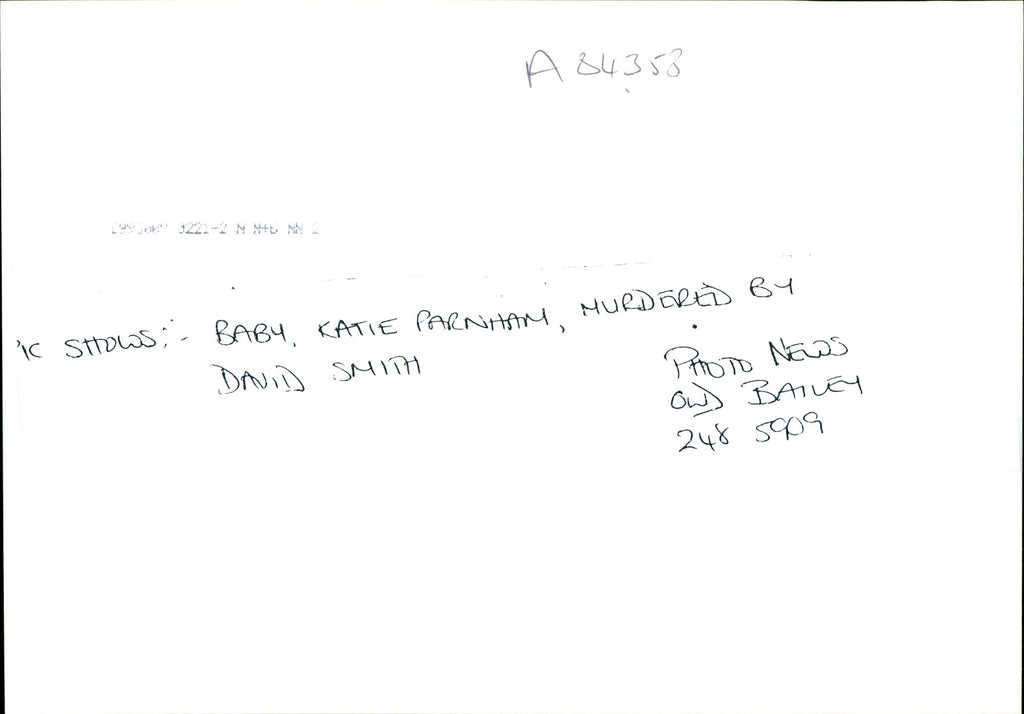 A 84358
3221-2 N N+6 NN 2
IC SHOWS:- BABY, KATIE PARNHAM, MURDERED BY
DAVID SMITH
PHOTO NEWS
OLD BAILEY
248 5909